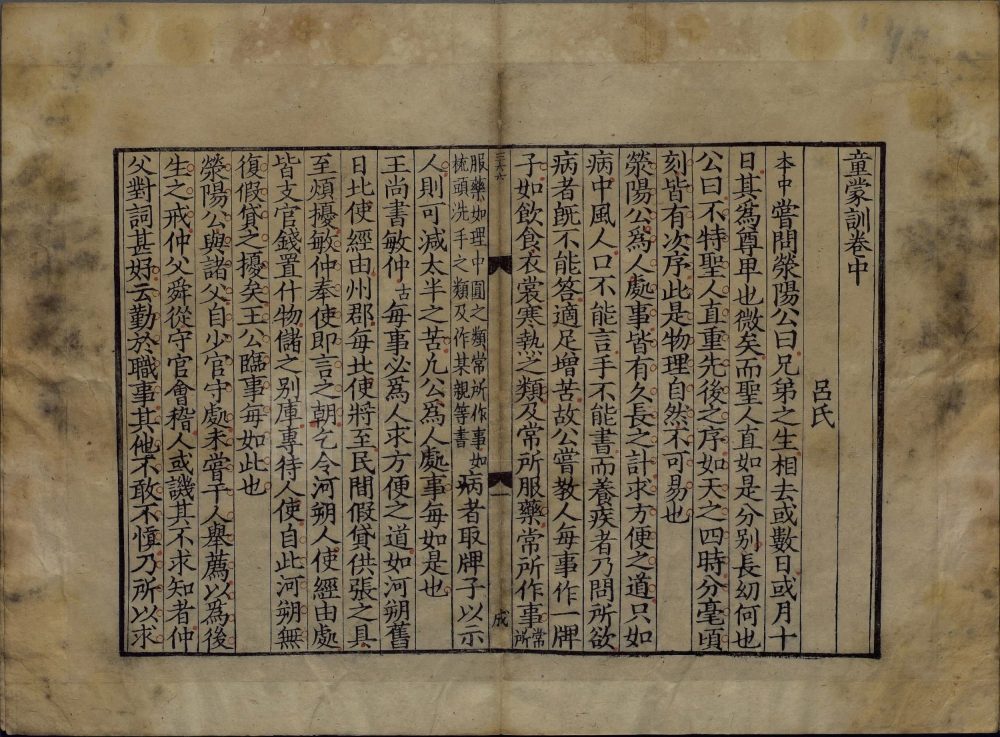 童蒙訓卷中
呂氏
本中嘗問滎陽公曰兄弟之生相去或數日或月十
日其爲尊卑也微矣而聖人直如是分别長幼何也
公曰不特聖人直重先後之序如天之四時分毫頃
刻皆有次序此是物理自然不可易也
滎陽公爲人處事皆有久長之計求方便之道只如
病中風人口不能言手不能書而養疾者乃問所欲
病者既不能答適足增苦故公嘗教人每事作一牌
子如飲食衣裳寒熱之類及常所服藥常所作事常所
服藥如理中圓之類常所作事如梳頭洗手之類及作某親等書病者取牌子以示
人則可減太半之苦凡公爲人處事每如是也
王尚書敏仲古每事必爲人求方便之道如河朔舊
日北使經由州郡每北使將至民間假貸供張之具
至煩擾敏仲奉使即言之朝乞令河朔人使經由處
皆支官錢置什物儲之别庫專待人使自此河朔無
復假貸之擾矣王公臨事每如此也
滎陽公與諸父自少官守處未嘗干人舉薦以爲後
生之戒仲父舜從守官會稽人或譏其不求知者仲
父對詞甚好云勤於職事其他不敢不慎乃所以求
一
成